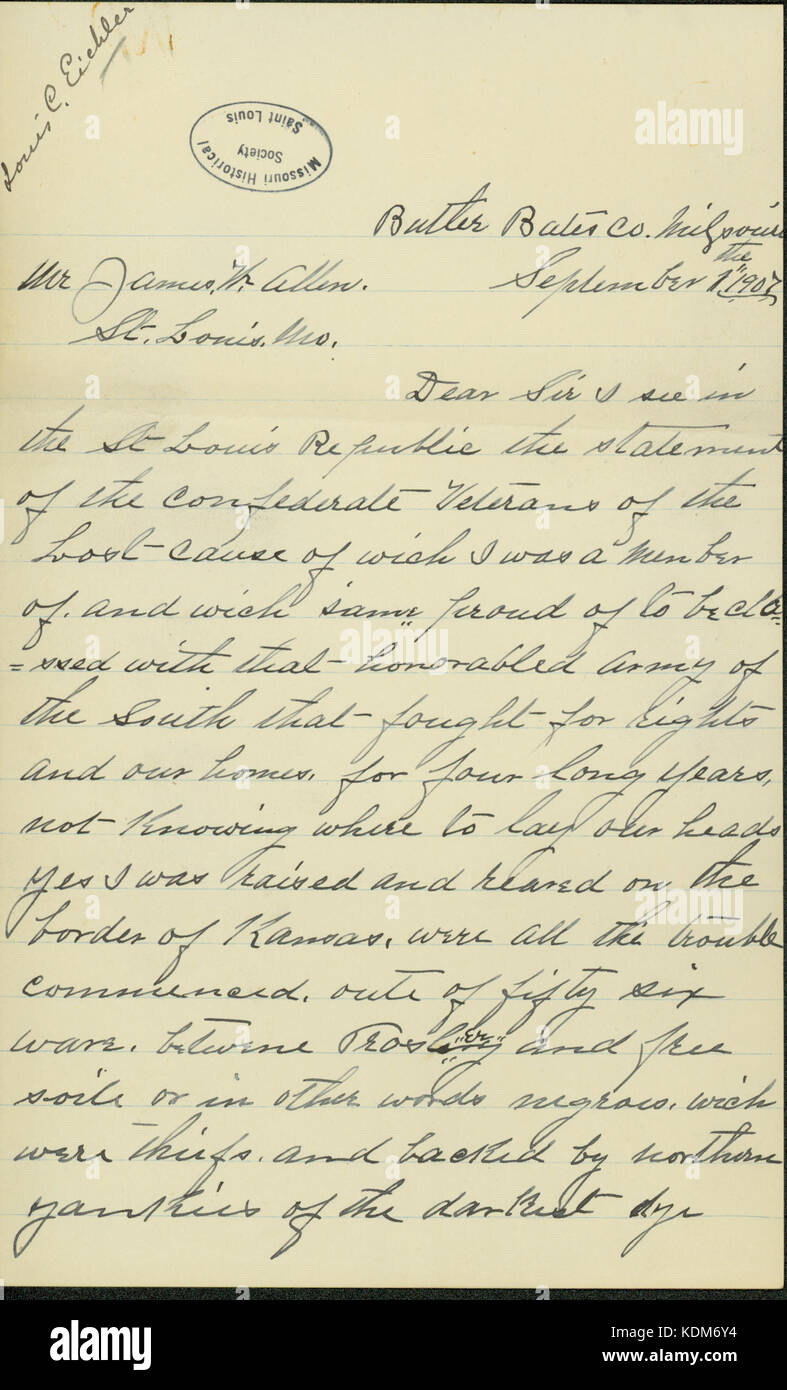 Louis C. Eichler
Missouri Historical
Society
Saint Louis
Butler Bates Co. Missouri
Mr James. W. Allen.
September 1" the 1907
St. Louis. Mo.
Dear Sir I see in
the St Louis Republic the statement
of the Confederate Veterans of the
Lost cause of wich I was a member
of. and wich "same" proud of to be cla=
=ssed with that honorabled army of
the South that fought for rights
and our homes. for four long years,
not Knowing where to lay our heads
yes I was raised and reared on the
border of Kansas, were all the trouble
commenced. oute of fifty six
ware. betwene and free
soile or in other words negroes. wich
were thiefs. and backed by northern
yankies of the darkest dye
alamy stock photo
KDM6Y4
www.alamy.com